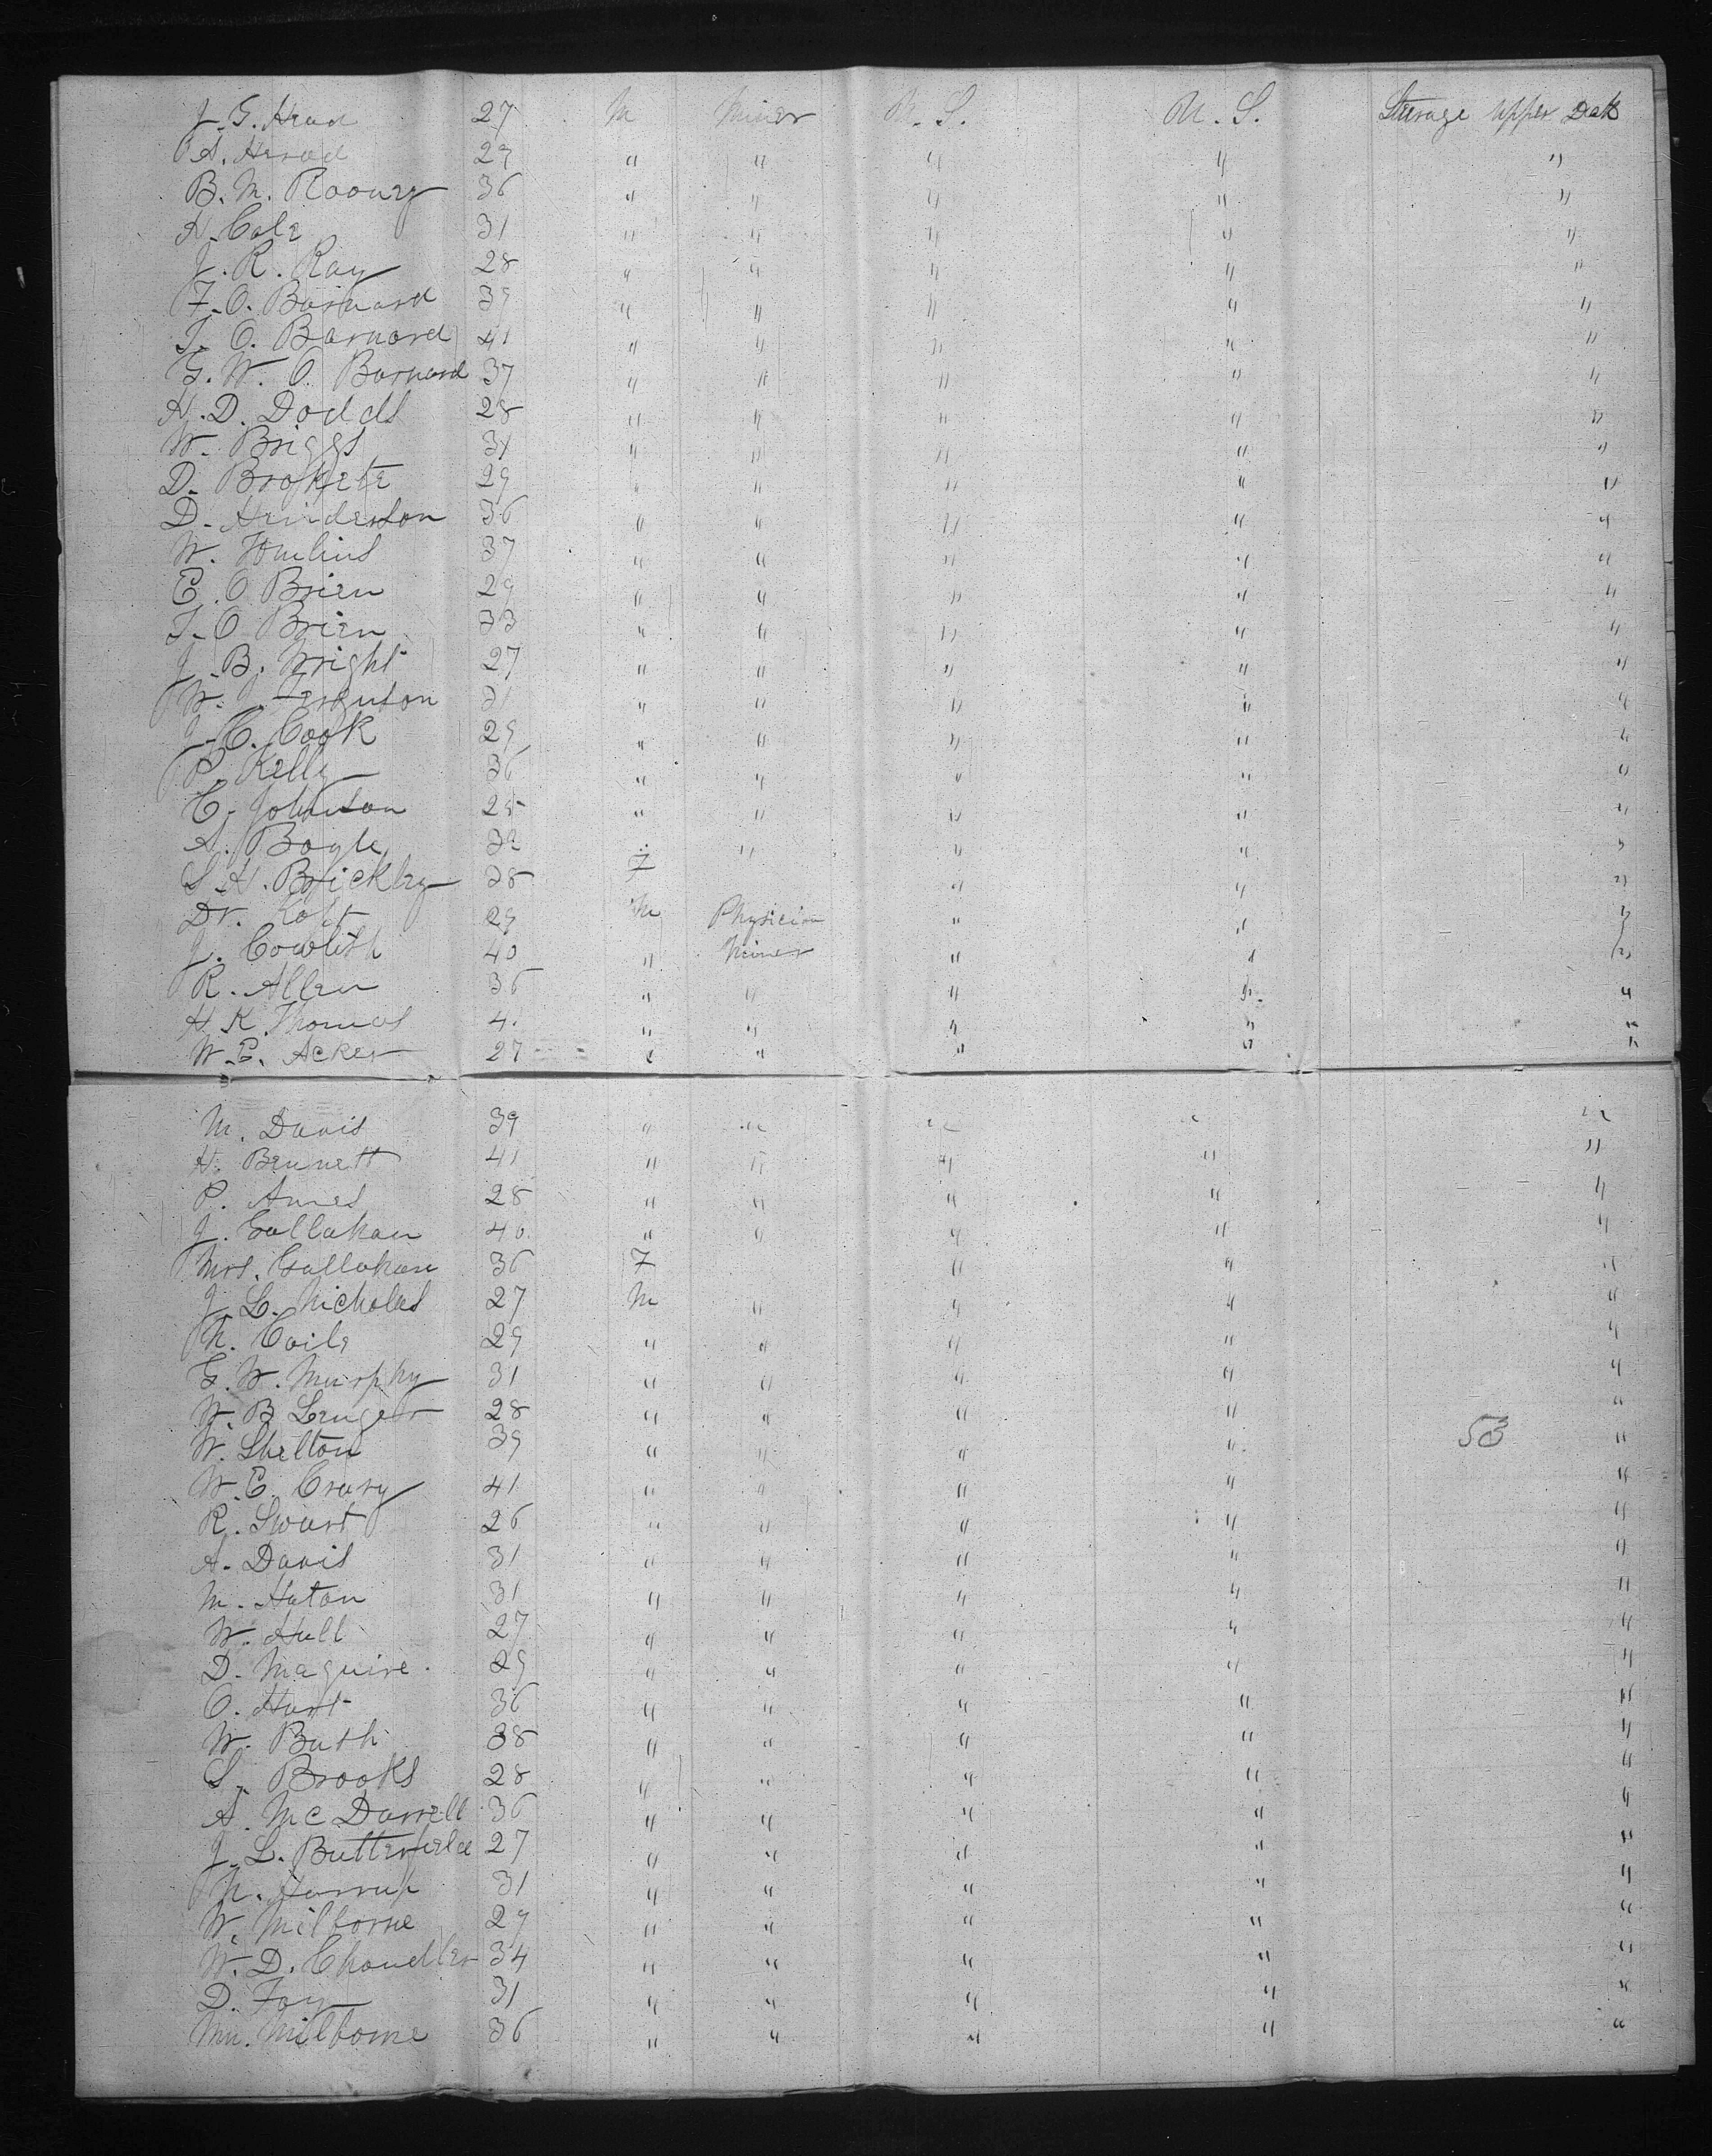 J. G. Head 27 M Miner U. S. U. S. Steerage Upper Deck
A. Herod 29 " " " " "
B. M. Rooney 36 " " " " "
H. Cole 31 " " " " "
J. R. Ray 28 " " " " "
F. O. Barnard 39 " " " " "
T. O. Barnard 41 " " " " "
G. W. O. Barnard 37 " " " " "
H. D. Dodds 28 " " " " "
W. Briggs 31 " " " " "
D. 29 " " " " "
D. Henderson 36 " " " " "
W. Tomlins 37 " " " " "
E. O Brien 29 " " " " "
T. O Brien 33 " " " " "
J. B. Wright 27 " " " " "
W. J. Ferguson 31 " " " " "
J. C. Cook 29 " " " " "
P. Kelly 36 " " " " "
C. Johnson 28 " " " " "
A. Bogle 32 " " " " "
S. H. Brickley 28 F " " "
Dr. 29 M Physician " " "
J. 40 " Miner " " "
R. Allen 36 " " " " "
H. K. Thomas 41 " " " " "
W. E. Acker 27 " " " " "
M. Davis 39 " " " " "
H. Bennett 41 " " " " "
P. Ames 28 " " " " "
J. Gallahan 40 " " " " "
Mrs. Gallahan 36 F " " "
J. L. Nicholas 27 M " " " "
N. Coile 29 " " " " "
G. W. Murphy 31 " " " " "
W. B. 28 " " " " "
W. Shelton 39 " " " 53 "
W. E. Crary 41 " " " " "
R. Swart 26 " " " " "
A. Davis 31 " " " " "
M. Haton 31 " " " " "
W. Hull 27 " " " " "
D. Maguire. 29 " " " " "
C. Hart 36 " " " " "
W. Buth 38 " " " " "
S. Brooks 28 " " " " "
A. McDarrell 36 " " " " "
J. L. Butterfield 27 " " " " "
N. 31 " " " " "
W. Milborne 29 " " " " "
W. D. Chandler 34 " " " " "
D. Fay 31 " " " " "
Milborne 36 " " " " "